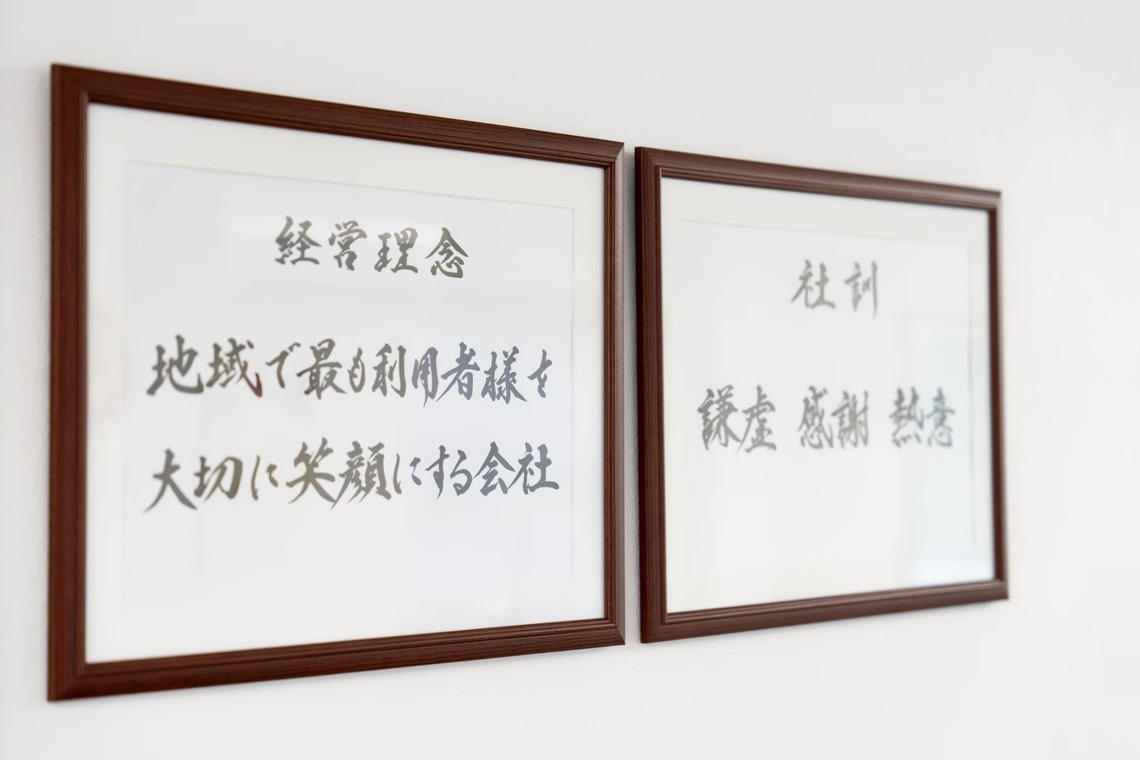 経営理念
地域で最も利用者様を
大切に笑顔にする会社
社訓
謙虚 感謝 熱意